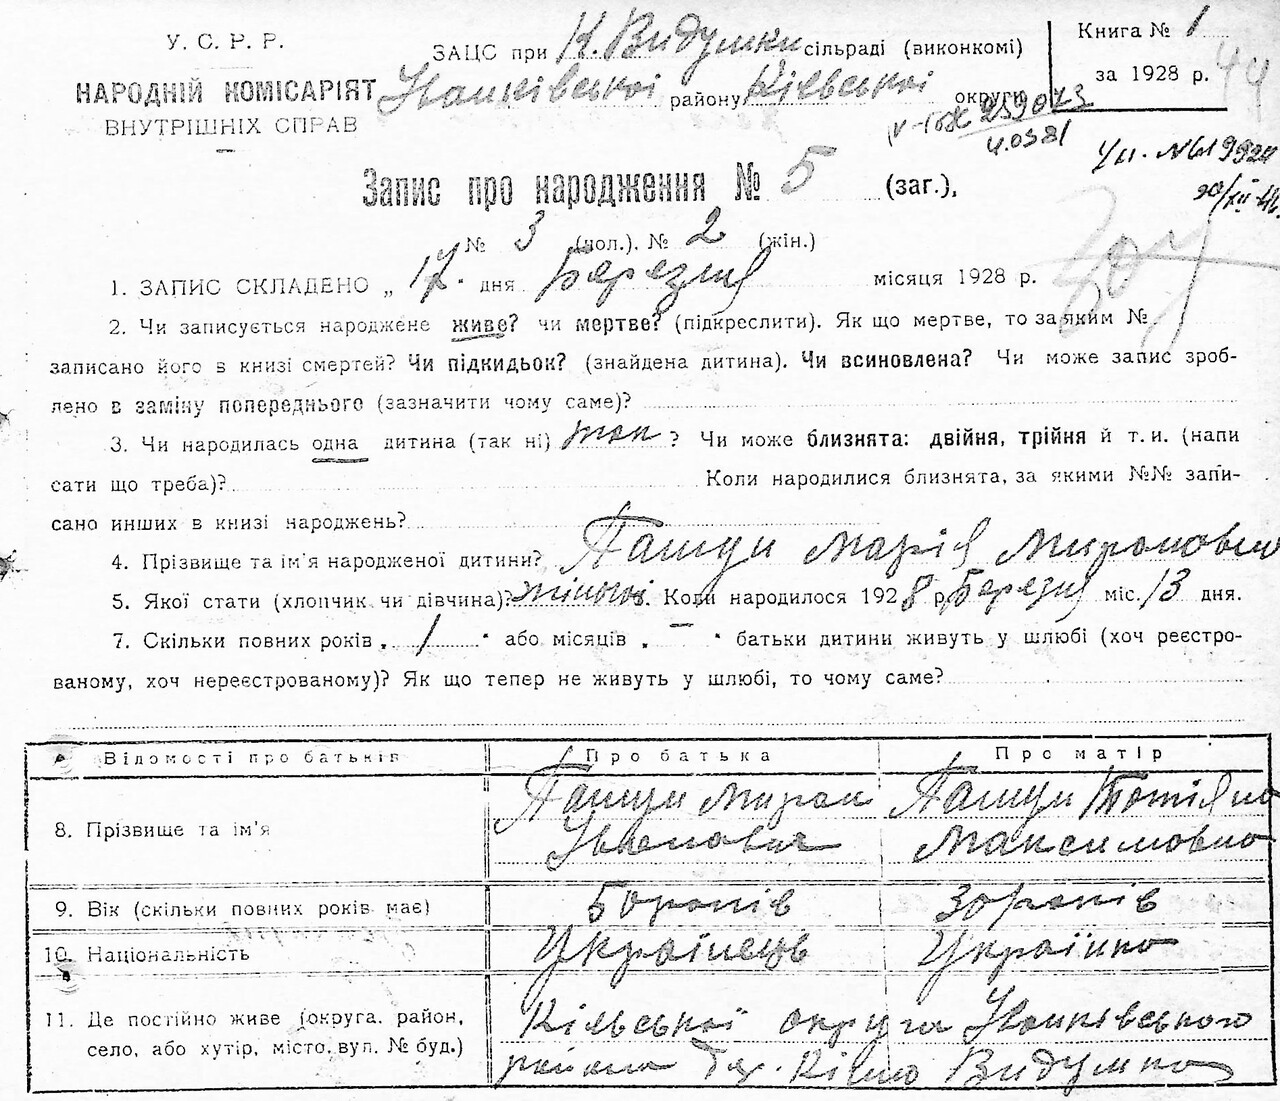 У. С. Р. Р.
НАРОДНІЙ КОМІСАРІЯТ
ВНУТРІШНІХ СПРАВ
ЗАЦС при К. Видумки сільраді (виконкомі)
Іванківської району Київської округи
Книга № 1
за 1928 р.
44
259073
4.0381
Запис про народження № 5 (заг.),
№ 3 (чол.). № 2 (жін.)
1. ЗАПИС СКЛАДЕНО „ 17 " дня Березня місяця 1928 р.
2. Чи записується народжене живе? чи мертве? (підкреслити). Як що мертве, то за яким №
записано його в книзі смертей? Чи підкидьок? (знайдена дитина). Чи всиновлена? Чи може запис зроб-
лено в заміну попереднього (зазначити чому саме)?
3. Чи народилась одна дитина (так ні) так ? Чи може близнята: двійня, трійня й т. и. (напи
сати що треба)? Коли народилися близнята, за якими №№ запи-
сано инших в книзі народжень?
4. Прізвище та ім'я народженої дитини? Пащун Марія Мироновна
5. Якої стати (хлопчик чи дівчина)? жіночої. Коли народилося 1928 р. Березня міс. 13 дня.
7. Скільки повних років „ 1 " або місяців „ – " батьки дитини живуть у шлюбі (хоч реєстро-
ваному, хоч нереєстрованому)? Як що тепер не живуть у шлюбі, то чому саме?
Відомості про батьків Про батька Про матір
8. Прізвище та ім'я Пащун Мирон Іванович Пащун Тотіяна Максимовна
9. Вік (скільки повних років має) 50 років 30 років
10. Національність Українець Українка
11. Де постійно живе (округа, район,
село, або хутір, місто, вул. № буд.)
Київської округа Іванківського
района Видумка